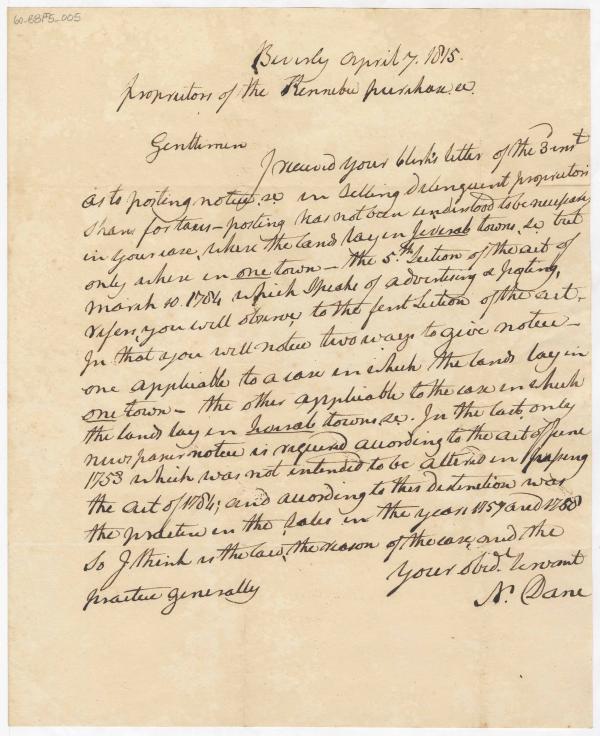 60-BBF5-005
Beverly April 7. 1815.
proprietors of the Kennebec purchase &c.
Gentlemen
I received your Clerk's letter of the 3 inst
as to posting notices &c in selling delinquent proprietors
shares for taxes – posting has not been understood to be necessary
in your case, where the lands lay in several towns &c but
only where in one town – the 5th Section of the act of
March 10. 1784 which speaks of advertising & posting,
refers, you will observe, to the first section of the act –
In that you will notice two ways to give notice –
one applicable to a case in which the lands lay in
one town – the other applicable to the case in which
the lands lay in several towns &c. In the last, only
newspaper notice is required according to the act of June
1753 which was not intended to be altered in passing
the act of 1784; and according to this distinction was
the practice in the sales in the years 1757 and 1758
So I think is the law, the reason of the case, and the
practice generally
Your obed. Servant
N. Dane